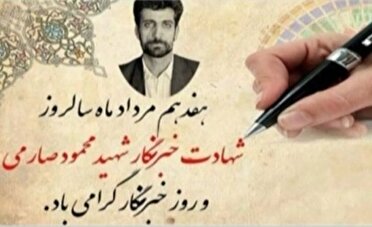 هفدهم مرداد ماه سالروز
شهادت خبرنگار شهید محمود صارمی
و روز خبرنگار گرامی باد.